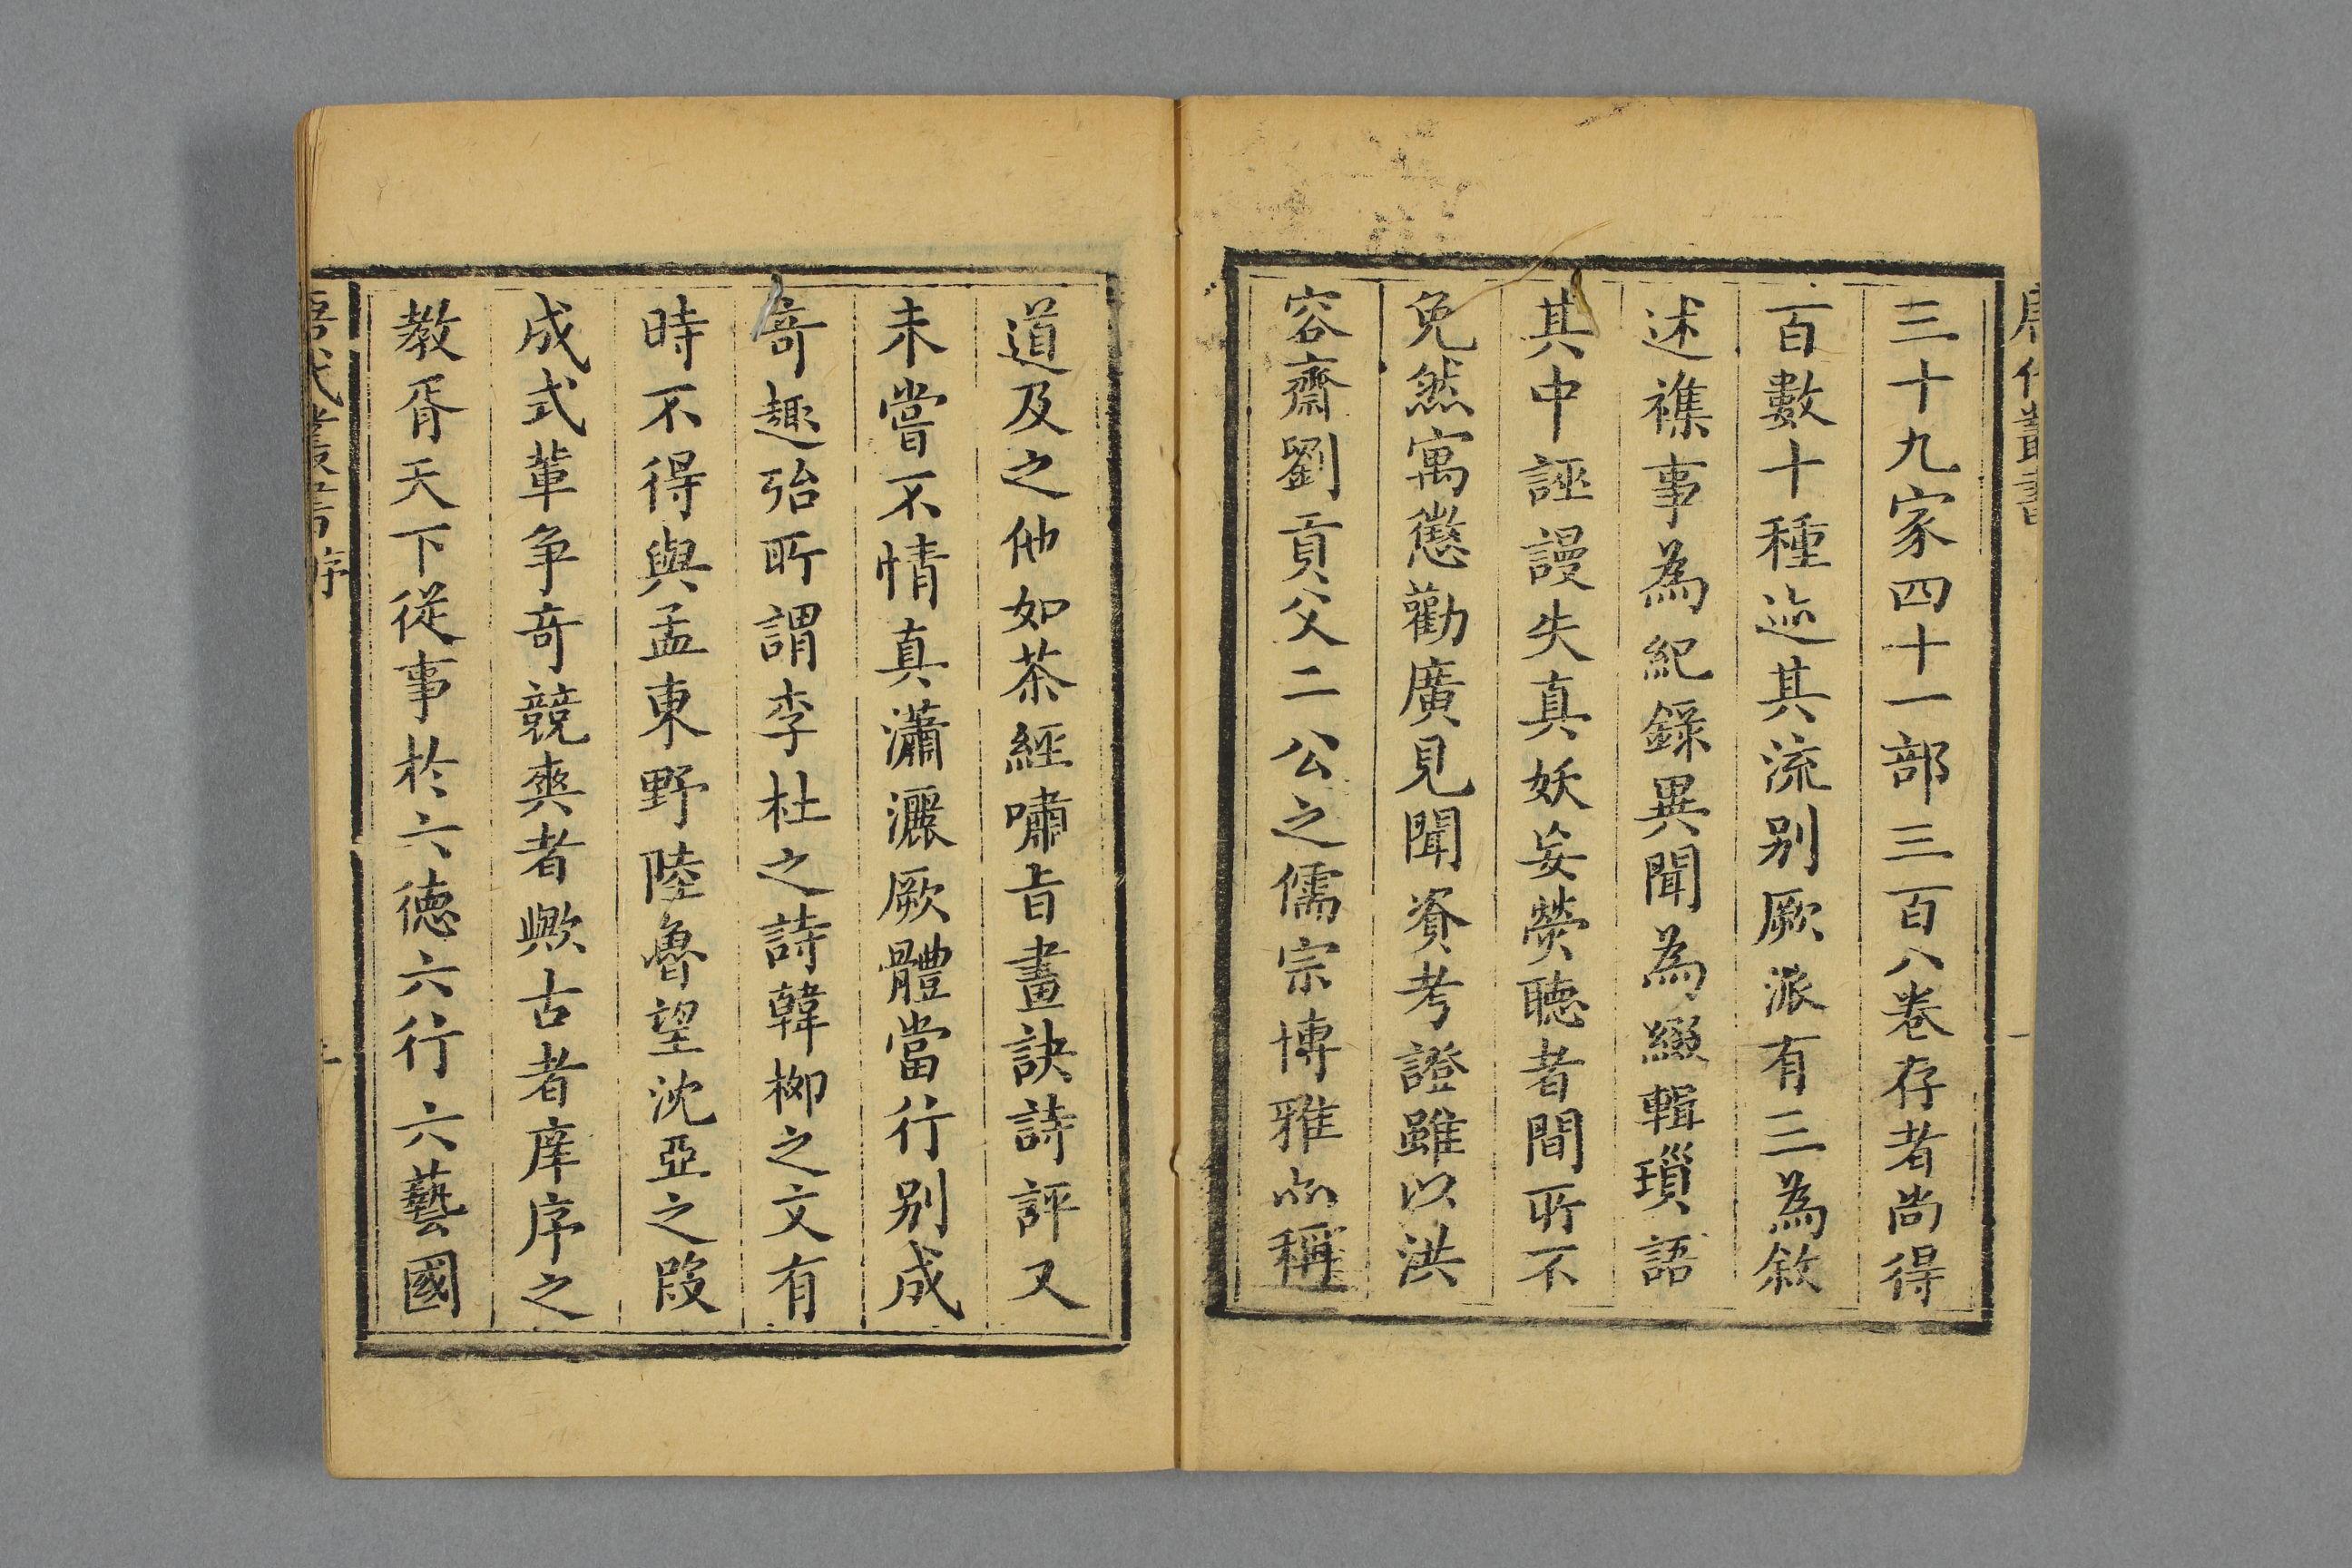 唐代叢書
三十九家四十一部三百八卷存者尚得
百數十種迹其流别厥派有三為敘
述襍事為紀錄異聞為綴輯瑣語
其中誣謾失真妖妄熒聽者間所不
免然寓懲勸廣見聞資考證雖以洪
容齋劉貢父二公之儒宗博雅亦稱
道及之他如茶經嘯旨畫訣詩評又
未嘗不情真瀟灑厥體當行别成
竒趣殆所謂李杜之詩韓栁之文有
時不得與孟東野陸魯望沈亞之段
成式輩争奇競爽者歟古者庠序之
教胥天下從事於六德六行六藝國
唐代叢書序